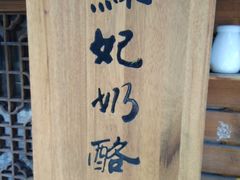 妃奶酪